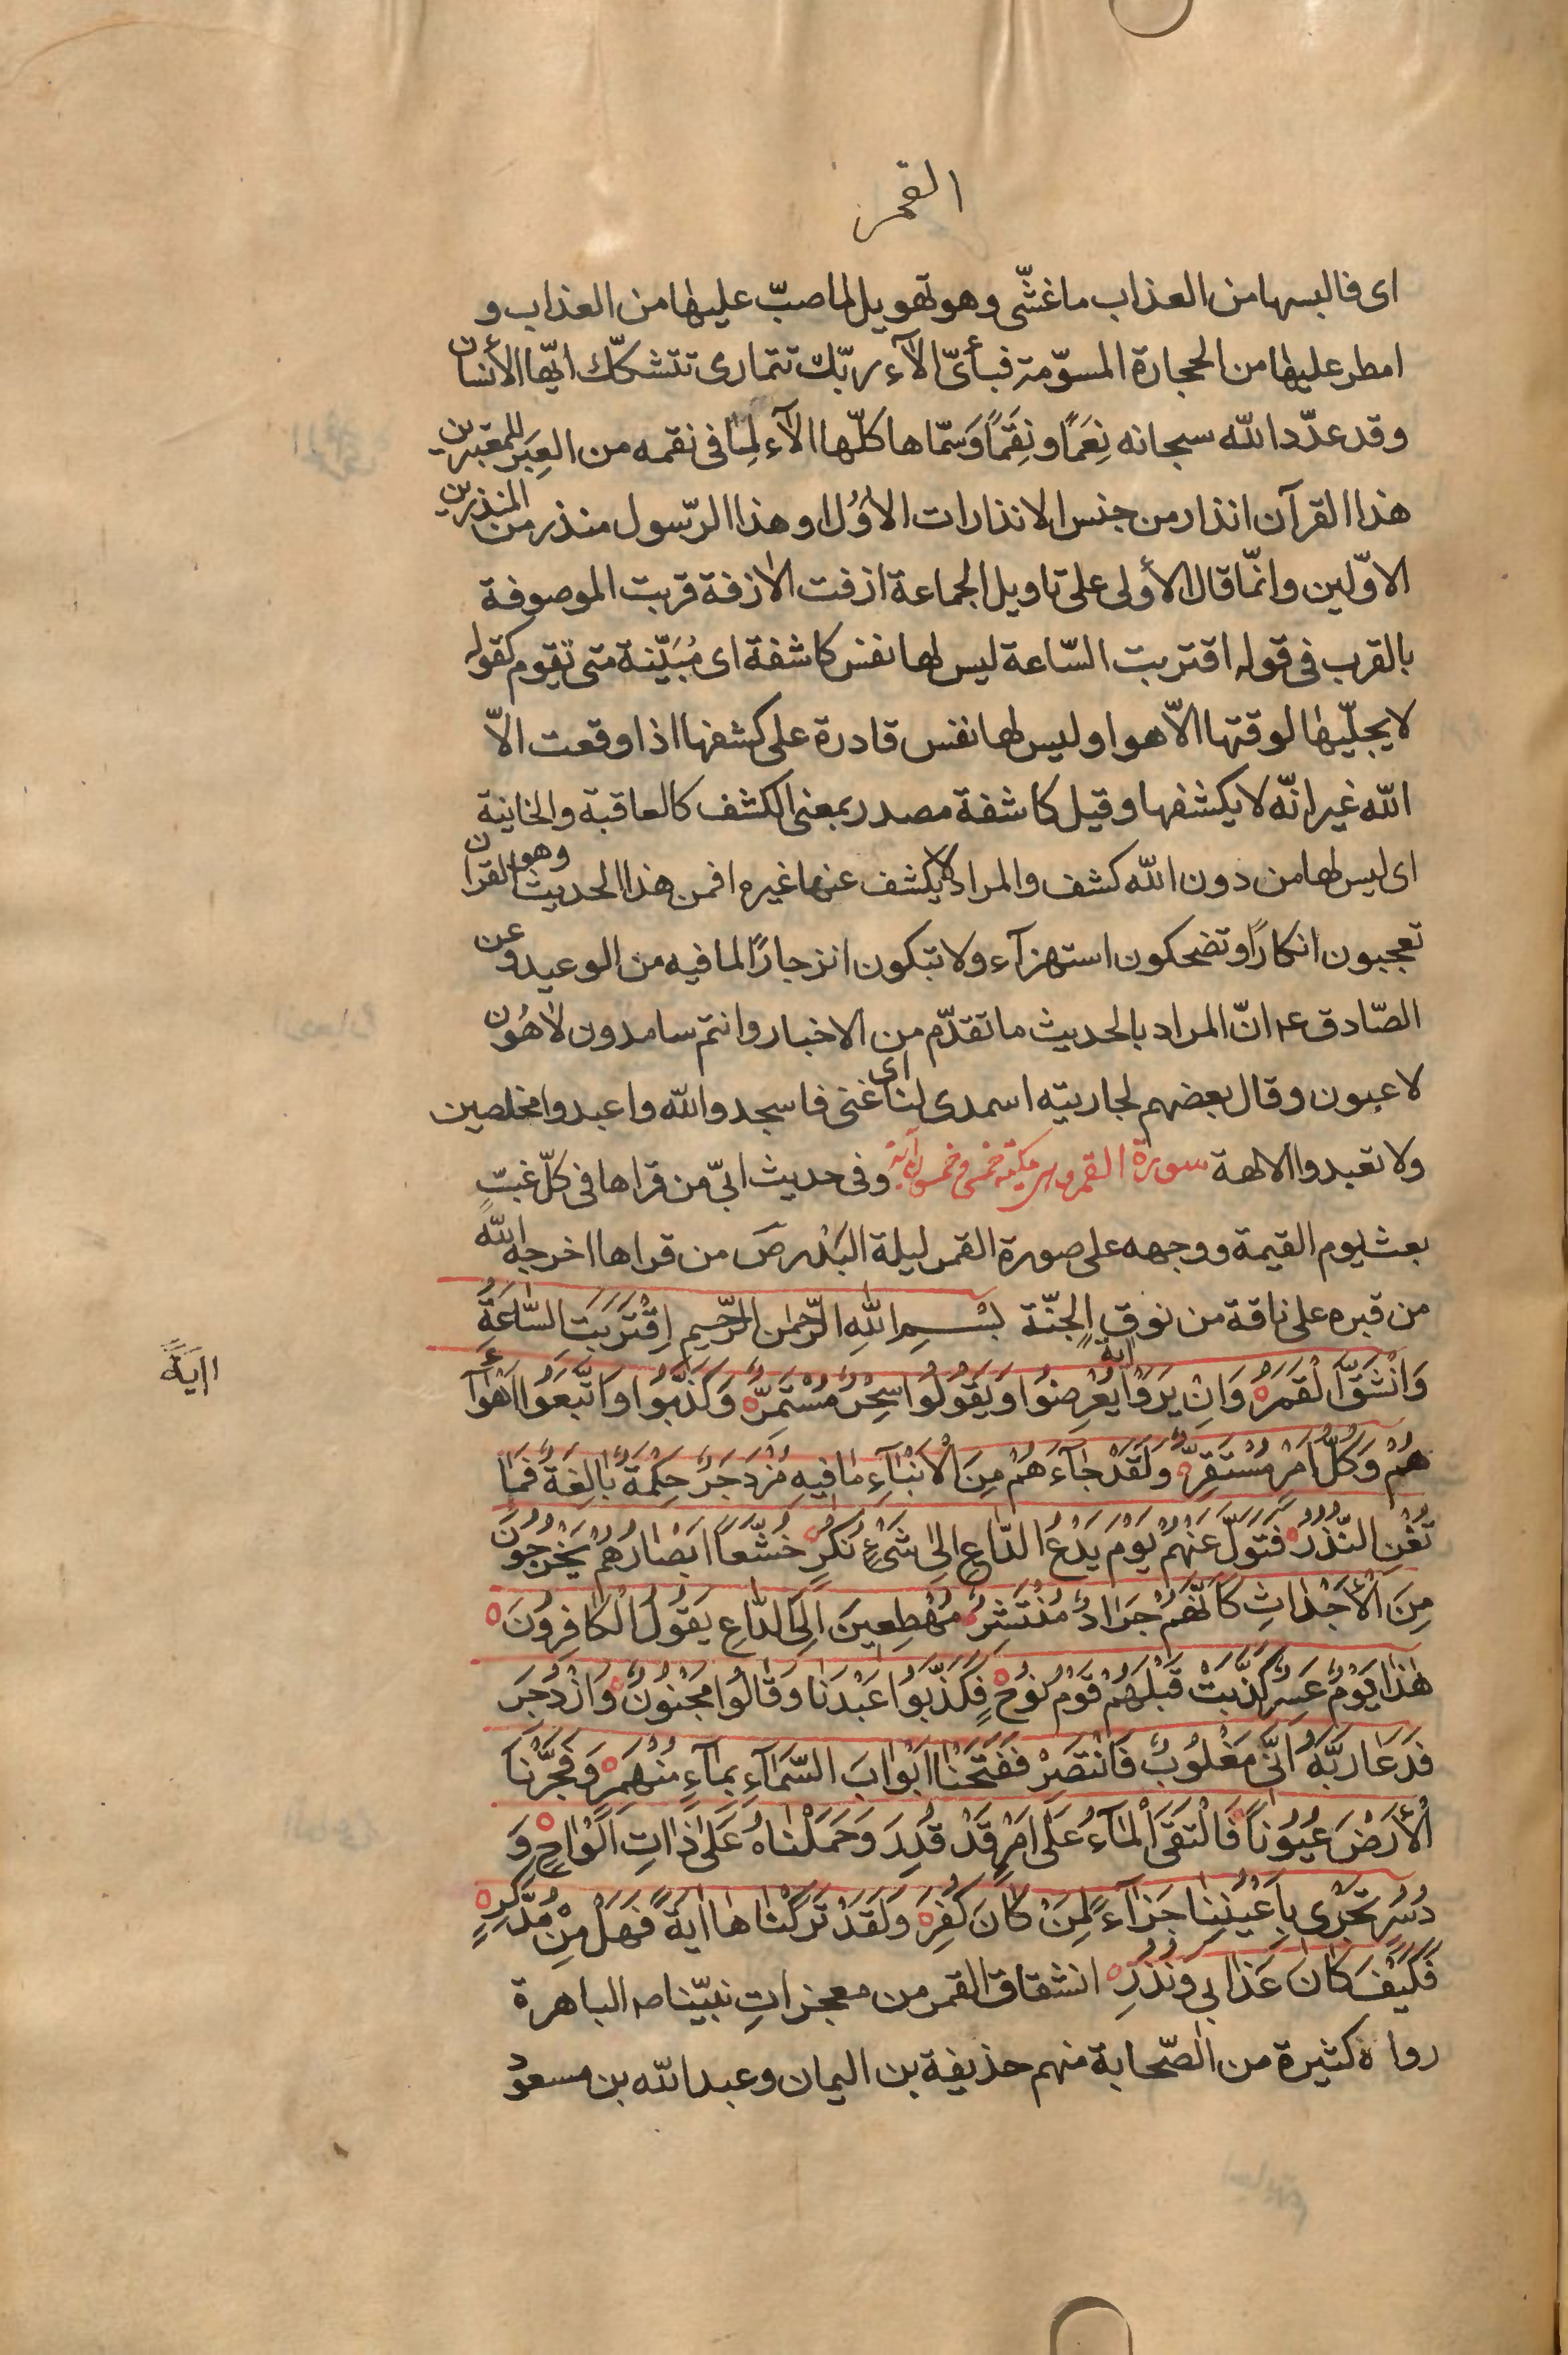 القمر
اى فالبسها من العذاب ما غشّى وهو تهويل لما صبّ عليها من العذاب و
امطر عليها من الحجارة المسوّمة فبأىّ الآء ربّك تتمارى تتشكّك ايّها الأنسان
وقد عدّد الله سبحانه نِعَمًا ونِقَمًا وَسمّاها كلّها الآء لِمٰا فى نقمه من العِبَر للمعتبرين
هذا القرآن انذار من جنس الانذارات الاُوَل او هذا الرّسول منذر من المنذرين
الاوّلين وانّما قال الأولى على تاويل الجماعة ازفت الاٰزفة قربت الموصوفة
بالقرب فى قوله اقتربت السّاعة ليس لها نفس كاشفة اى مُبَيّنة متى تقوم كقوله
لا يجلّيها لوقتها الاّ هو او ليس لها نفس قادرة على كشفها اذا وقعت الاّ
الله غير انّه لا يكشفها وقيل كاشفة مصدر بمعنى الكشف كالعاقبة والخاينة
اى ليس لها من دون الله كشف والمراد لا يكشف عنها غيره افمن هذا الحديث وهو القران
تعجبون انكارًا وتضحكون استهزآء ولا تبكون انزجارًا لما فيه من الوعيد وعن
الصّادق ع انّ المراد بالحديث ما تقدّم من الاخبار وانتم سامدون لاٰهُون
لاعبون وقال بعضهم لجاريته اسمدى لنا اى غنى فاسجدوا لله واعبدوا مخلصين
ولا تعبدوا الالهة سورة القمر وهى مكيّة خمس وخمسون آية وفى حديث ابىّ من قراها فى كلّ غبتٍ
بعث يوم القيمة ووجهه على صورة القمر ليلة البَدْر صَ من قراها اخرجه الله
من قبره على ناقة من نوق الجنّة بِسْمِ اللهِ الرَّحْمٰنِ الرَّحيمِ اِقْتَرَبَتِ السّٰاعَةُ
وَانْشَقَّ الْقَمَرُ وَاِنْ يَرَوْا ايةً يُعْرِضُوا وَيَقُولُوا سِحْرٌ مُسْتَمِرٌّ وَكَذَّبُوا وَاتَّبَعُوا اَهْوٰآءَ
اايَةً
هُمْ وَكُلُّ اَمْرٍ مُسْتَقِرٌّ وَلَقَدْ جٰآءَهُمْ مِنَ الْاَنْبٰآءِ مٰا فيهِ مُزْدَجَرٌ حِكْمَةٌ بٰالِغَةٌ فَمٰا
تُغْنِ النُّذُرُ فَتَوَلَّ عَنْهُمْ يَوْمَ يَدْعُ الدّٰاعِ اِلىٰ شَىْءٍ نُكُرٍ خُشَّعًا اَبْصٰارُهُمْ يَخْرُجُونَ
مِنَ الْاَجْدٰاثِ كَاَنَّهُمْ جَرٰادٌ مُنْتَشِرٌ مُهْطِعينَ اِلَى الدّٰاعِ يَقُولُ الْكٰافِرُونَ
هٰذٰا يَوْمٌ عَسِرٌ كَذَّبَتْ قَبْلَهُمْ قَوْمُ نُوحٍ فَكَذَّبُوا عَبْدَنٰا وَقٰالُوا مَجْنُونٌ وَازْدُجِرَ
فَدَعٰا رَبَّهُ اَنّى مَغْلُوبٌ فَانْتَصِرْ فَفَتَحْنٰا اَبْوٰابَ السَّمٰآءِ بِمٰآءٍ مُنْهَمِرٍ وَفَجَّرْنَا
الْأَرْضَ عُيُونًا فَالْتَقَى الْمٰآءُ عَلىٰ اَمْرٍ قَدْ قُدِرَ وَحَمَلْنٰاهُ عَلىٰ ذٰاتِ اَلْوٰاحٍ وَ
دُسُرٍ تَجْرى بِاَعْيُنِنٰا جَزٰآءً لِمَنْ كٰانَ كُفِرَ وَلَقَدْ تَرَكْنٰاهٰا ايَةً فَهَلْ مِنْ مُدَّكِرٍ
فَكَيْفَ كٰانَ عَذٰابى وَنُذُرِ انشقاق القمر من معجزاتِ نبيّنا ص الباهرة
رواه كثيرة من الصّحابة منهم حذيفة بن اليمان وعبد الله بن مسعود